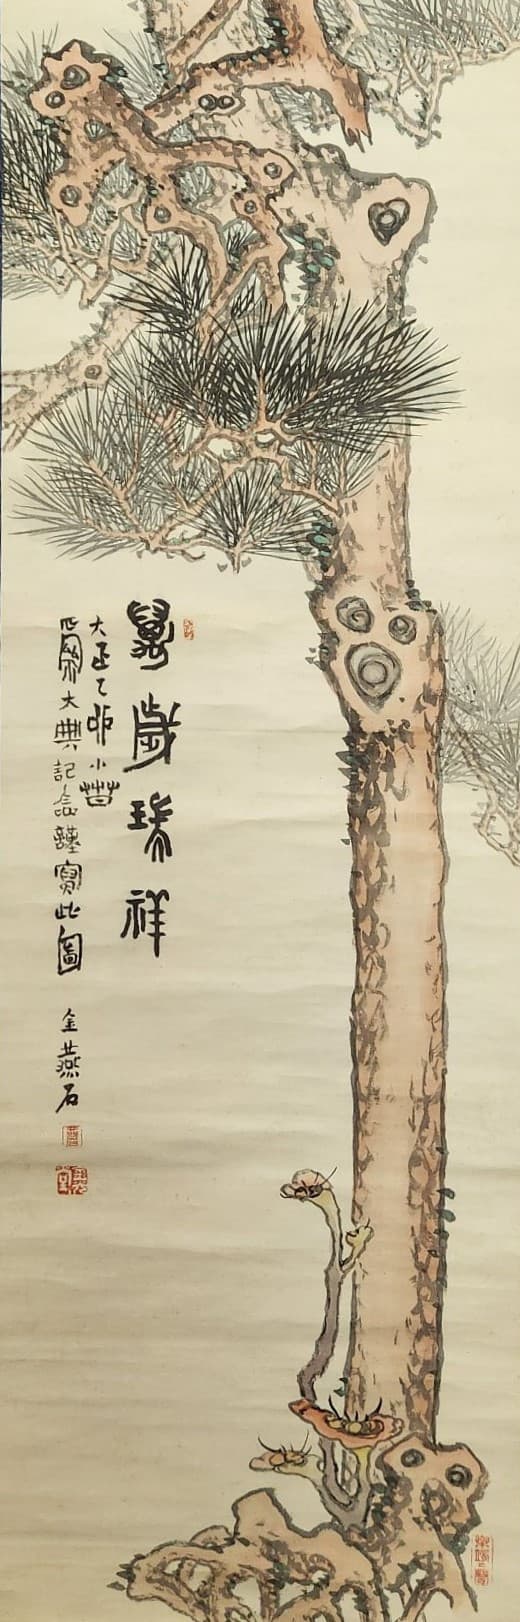 萬歲瑞祥
大正乙卯小春
大典記念謹寫此圖
金燕石